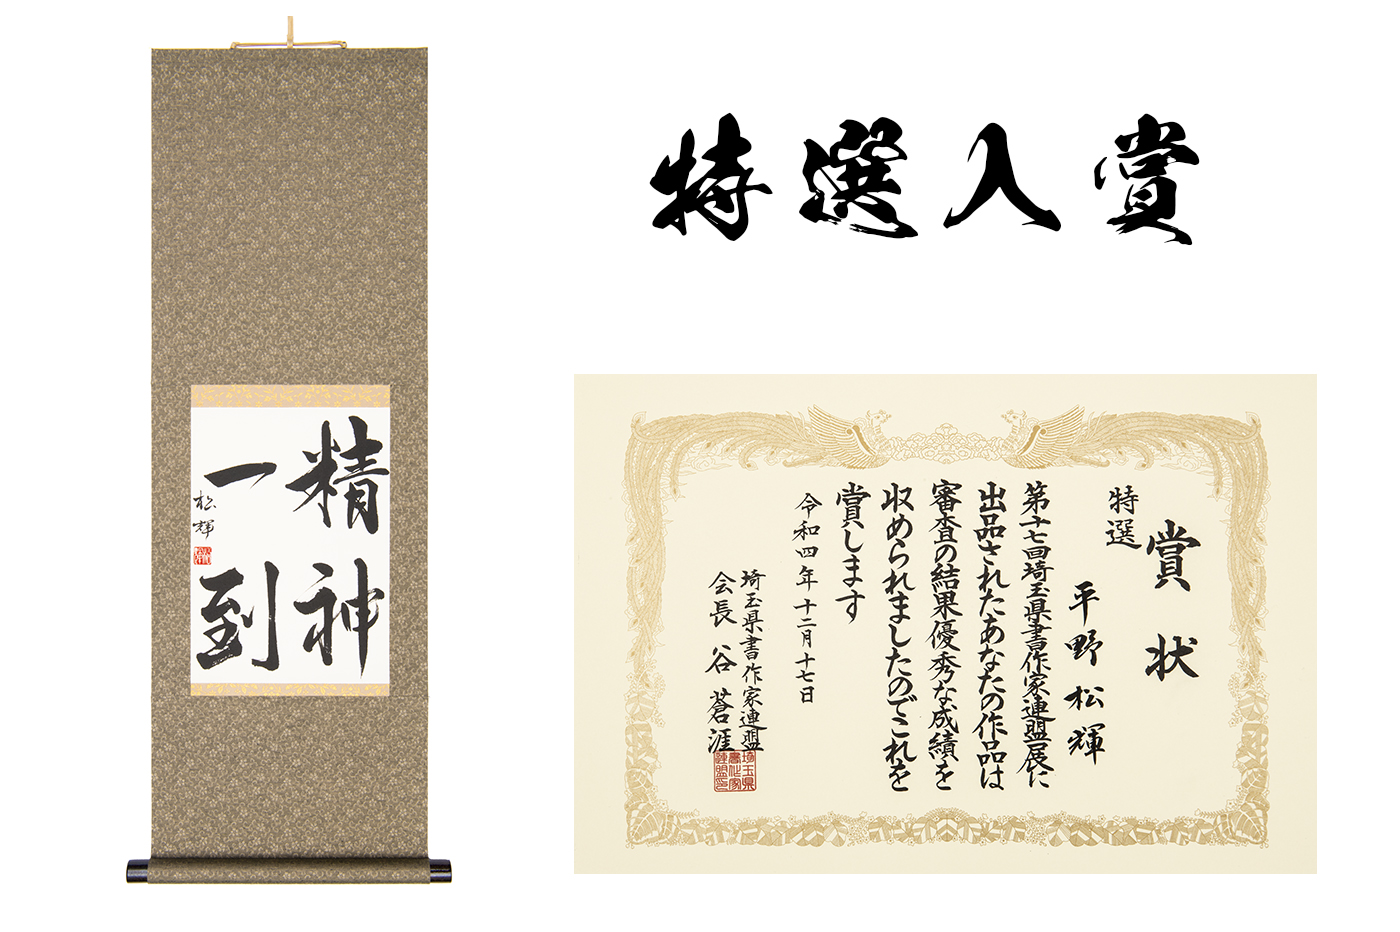 特選入賞
精神
一到
松輝
賞状
特選
平野松輝
第十七回埼玉県書作家連盟展に
出品されたあなたの作品は
審査の結果優秀な成績を
収められましたのでこれを
賞します
令和四年十二月十七日
埼玉県書作家連盟
会長 谷蒼涯
埼玉県
書作家
連盟印